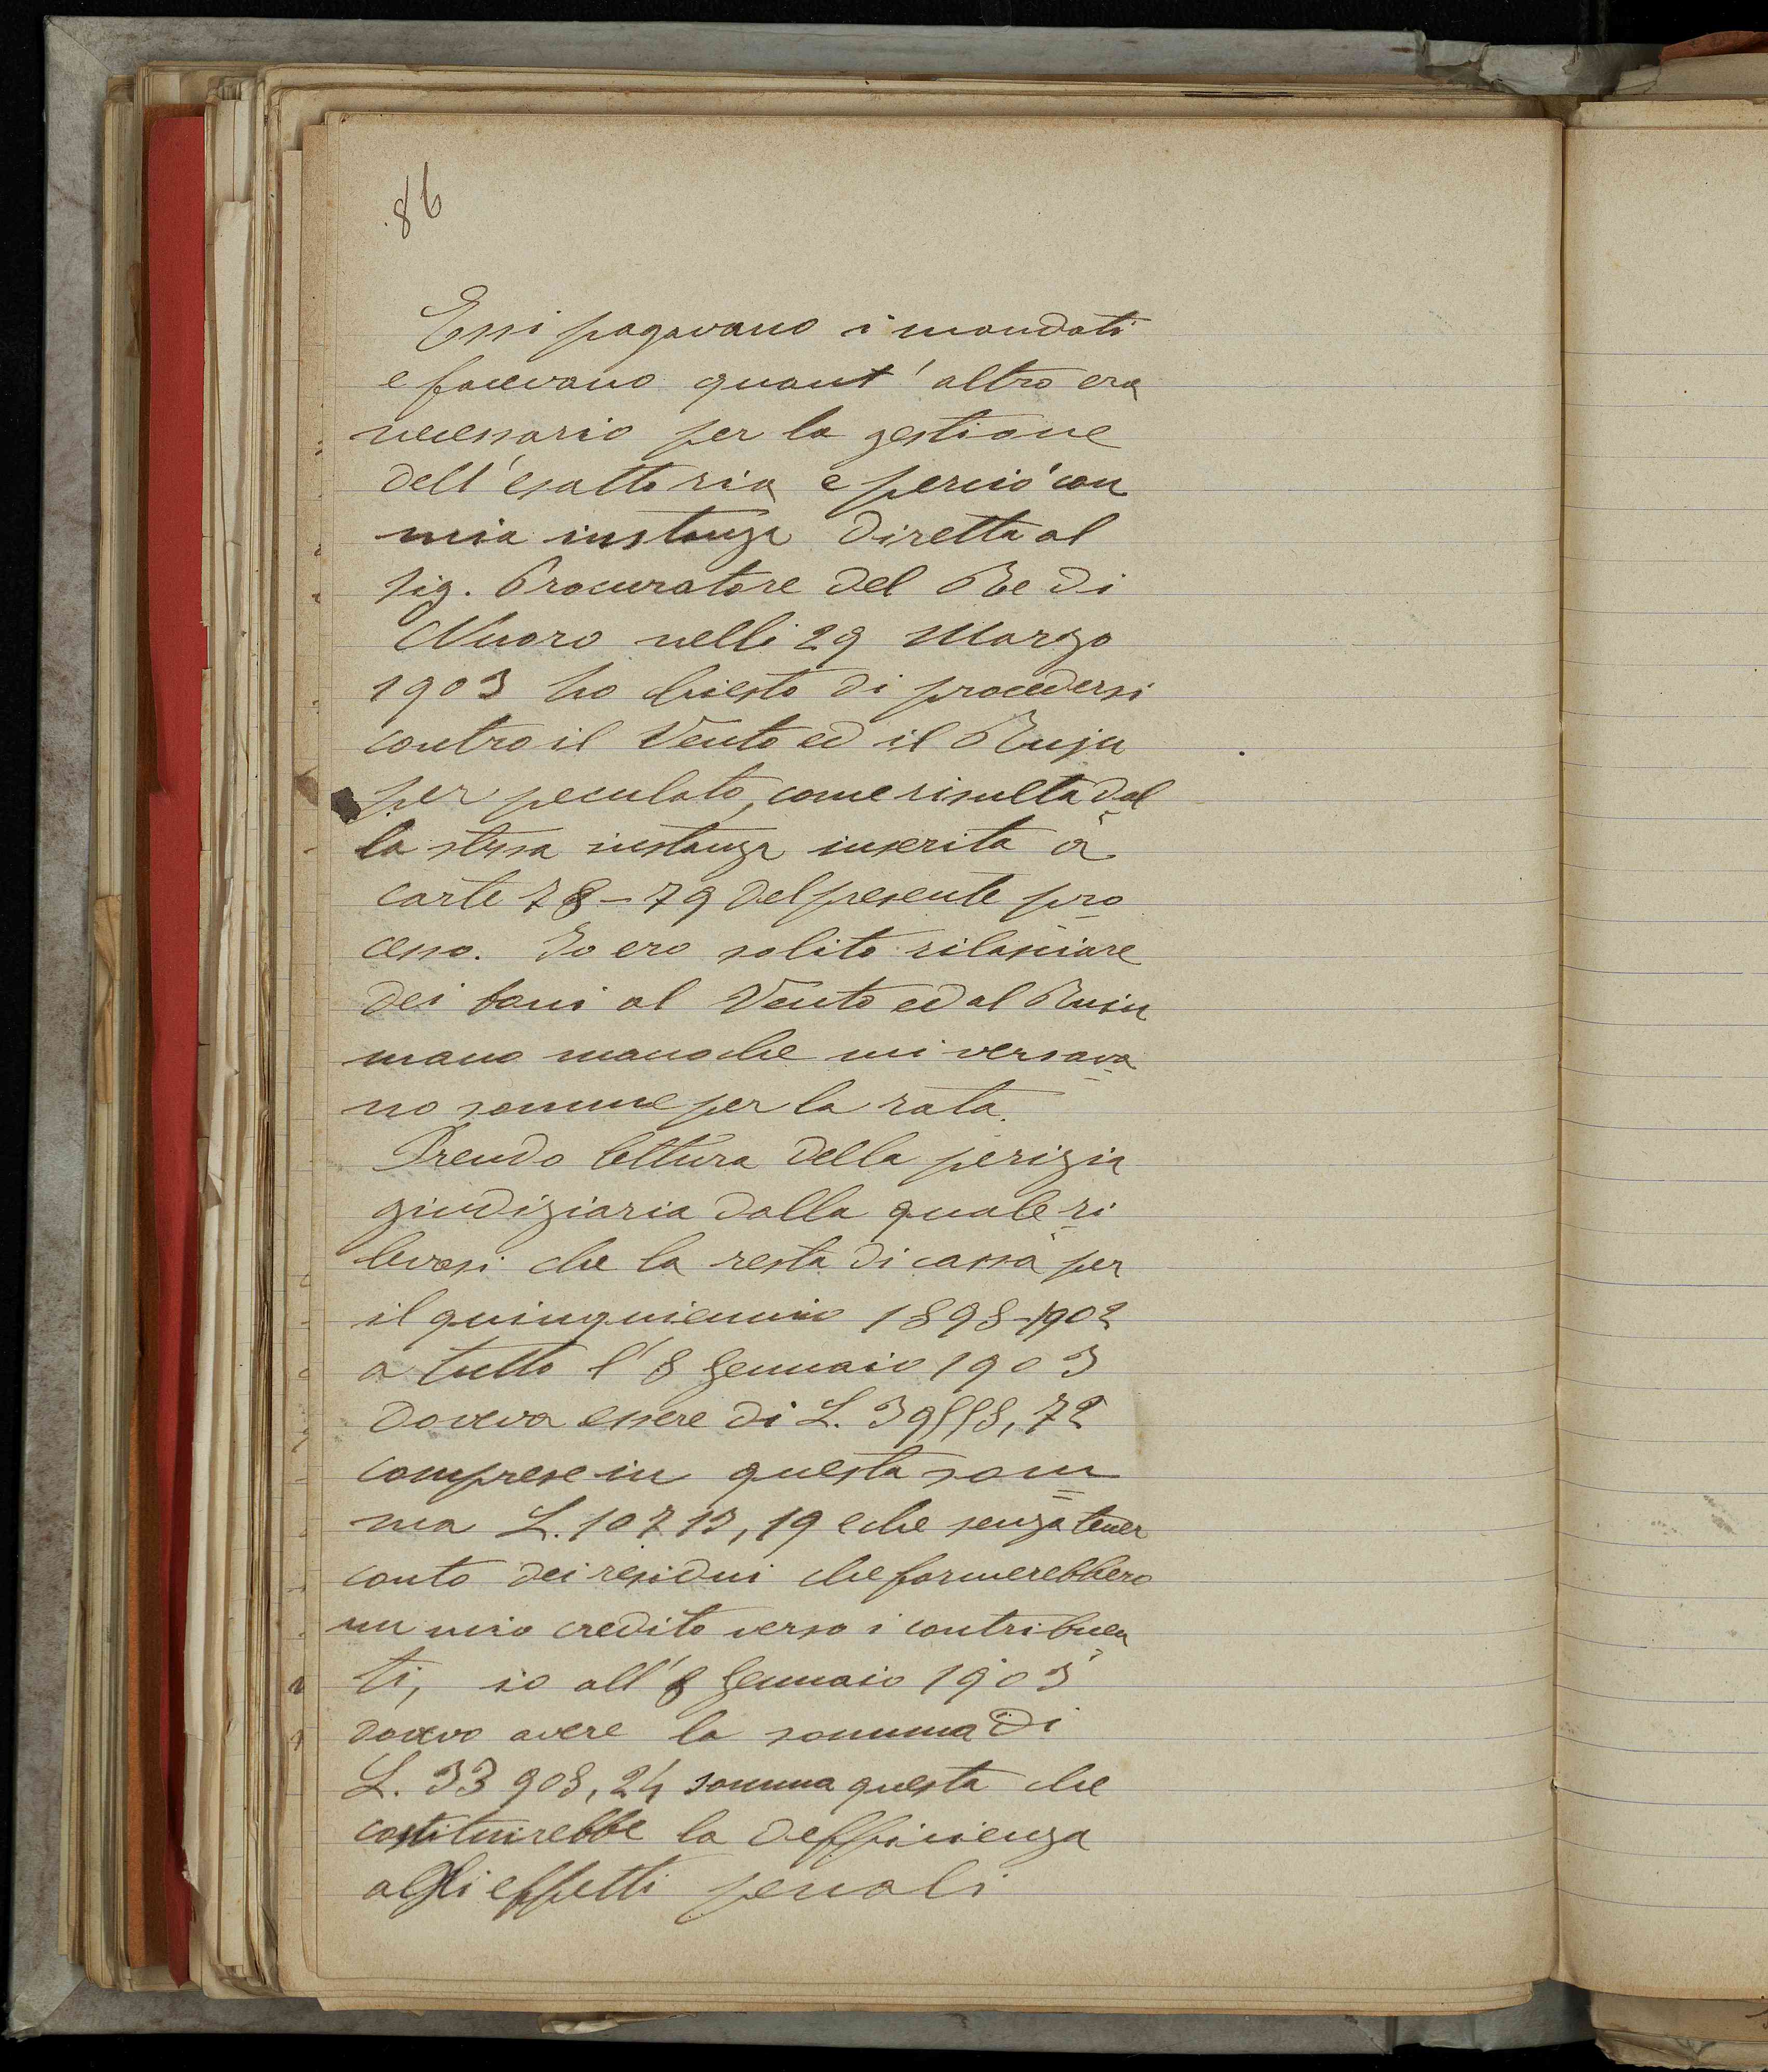 86
Essi pagavano i mandati
e facevano quant'altro era
necessario per la gestione
dell'esattoria e perciò con
mia instanza diretta al
Sig. Procuratore del Re di
Nuoro nelli 29 Marzo
1903 ho chiesto di procedersi
contro il Vento ed il Ruju
per peculato, come risulta dal
la stessa instanza inserita a
carte 78-79 del presente pro
cesso. Io ero solito rilasciare
dei boni al Vento ed al Ruju
mano mano che mi versava
no somme per la rata.
Prendo lettura della perizia
giudiziaria dalla quale ri
levasi che la resta di cassa per
il quinquiennio 1898-1902
a tutto l'8 Gennaio 1903
doveva essere di L. 39558,72
comprese in questa som
ma L. 10713,19 e che senza tener
conto dei residui che formerebbero
un mio credito verso i contribuen
ti, io all'8 Gennaio 1903
dovevo avere la somma di
L. 33908,24 somma questa che
costituirebbe la defficienza
agli effetti penali